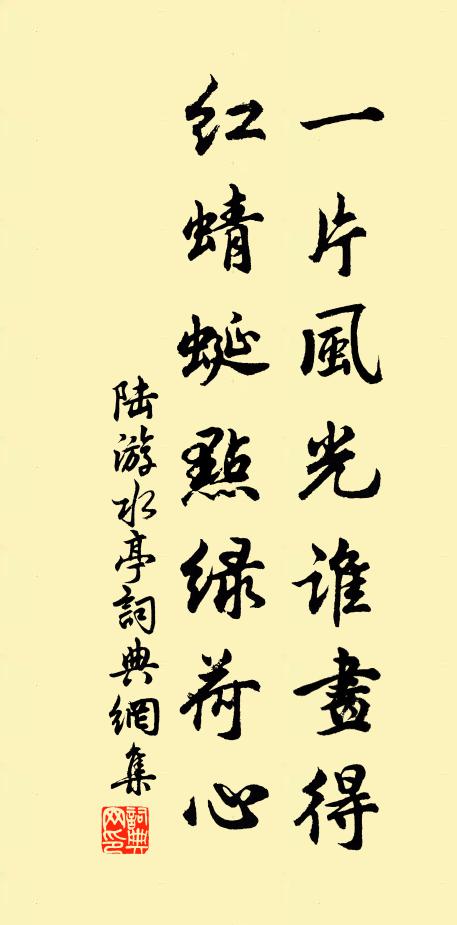 一片風光誰畫得
紅蜻蜓點緑荷心
陆游水亭詞典網集
詞典
网印